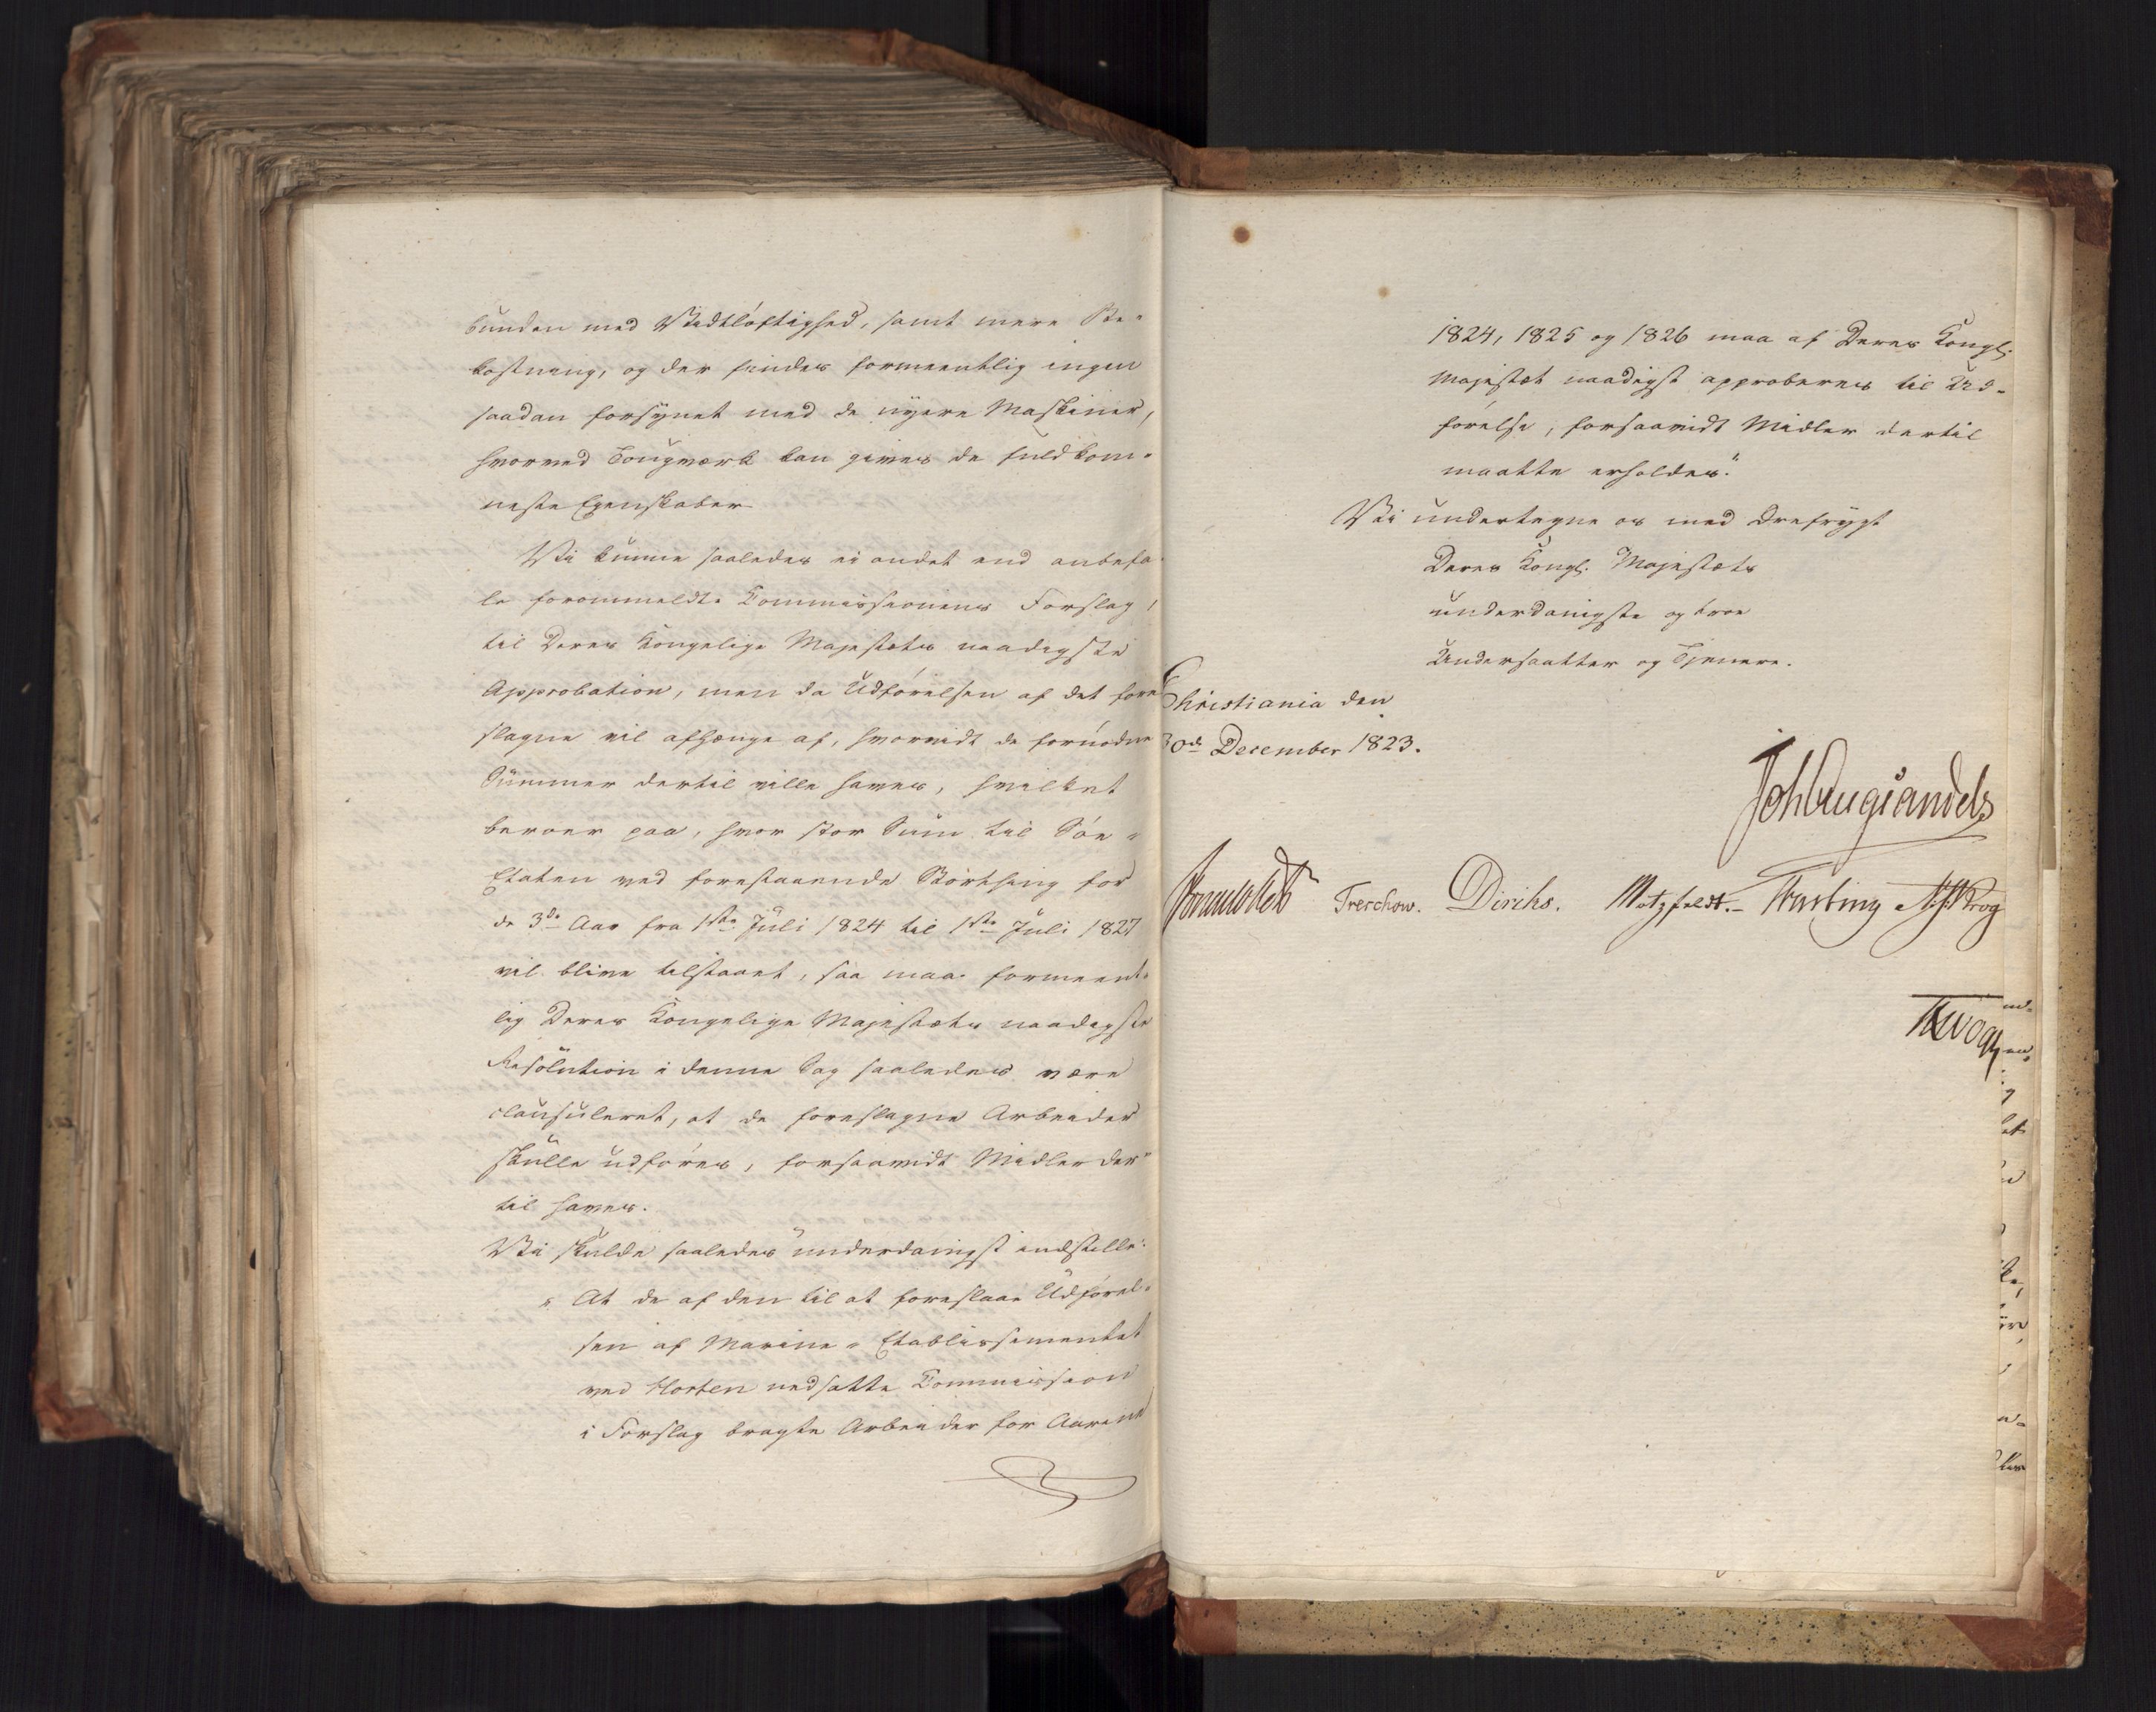 bunden med Vidtløftighed, samt mere Be-
kostning, og der findes formeentlig ingen
saadan forsynet med de nyere Maskiner,
hvorved Tougværk kan gives de fuldkom-
neste Egenskaber
Vi kunne saaledes ei andet end anbefa-
le forommeldte Commissionens Forslag,
til Deres Kongelige Majestæts naadigste
Approbation, men da Udførelsen af det fore
slagne vil afhænge af, hvorvidt de fornødne
Summer dertil ville haves, hvilket
beroer paa, hvor stor Sum til Søe-
Etaten ved forestaaende Storthing for
de 3de Aar fra 1ste Juli 1824 til 1ste Juli 1827
vil blive tilstaaet, saa maa formeent-
lig Deres Kongelige Majestæts naadigste
Resolution i denne Sag saaledes være
clausuleret, at de foreslagne Arbeider
skulle udføres, forsaavidt Midler der-
til haves.
Vi skulde saaledes underdanigst indstille:
"At de af den til at foreslaae Udførel-
sen af Marine-Etablissementet
ved Horten nedsatte Commission
i Forslag bragte Arbeider for Aarene
1824, 1825 og 1826 maa af Deres Kongl:
Majestæt naadigst approberes til Ud-
førelse, forsaavidt Midler dertil
maatte erholdes."
Vi undertegne os med Ærefrygt
Deres Kongl: Majestæts
underdanigste og troe
Undersaatter og Tjenere.
Christiania den
30de December 1823.
Joh Aug Sandels
Sommerhielm Treschow. Diriks. Motzfeldt. Fasting Krog
Vogt